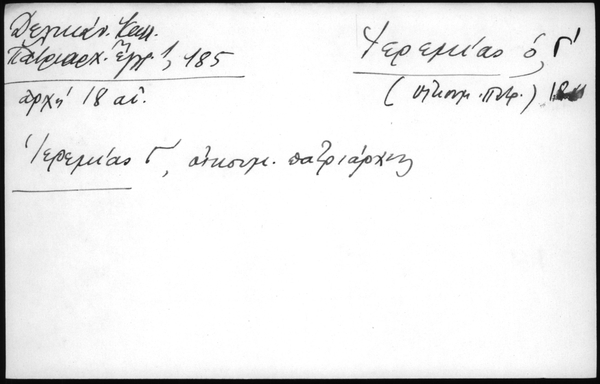 Δελικάν. Καλ.
Πατριαρχ. Ἔγγρ. 1, 185
ἀρχή 18 αἰ.
Ἱερεμίας ὁ Γ'
(οἰκουμ. πατρ.)
Ἱερεμίας Γ', οἰκουμ. πατριάρχης